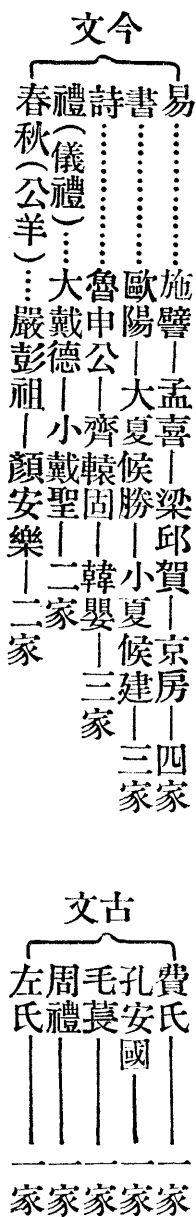 今文
易…………施讐—孟喜—梁邱賀—京房—四家
書…………歐陽—大夏候勝—小夏候建—三家
詩…………魯申公—齊轅固—韓嬰—三家
禮(儀禮)…大戴德—小戴聖—二家
春秋(公羊)…嚴彭祖—顏安樂—二家
古文
費氏———一家
孔安國———一家
毛萇———一家
周禮———一家
左氏———一家